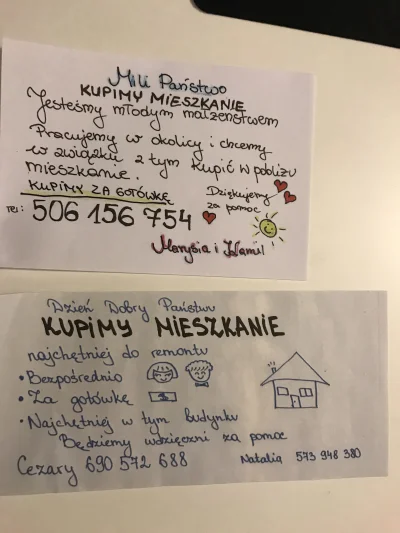 Mili Państwo
KUPIMY MIESZKANIE
Jesteśmy młodym małżeństwem
Pracujemy w okolicy i chcemy
w związku z tym kupić w pobliżu
mieszkanie.
KUPIMY ZA GOTÓWKĘ
Dziękujemy
za pomoc
tel: 506 156 754
Marysia i Kamil
Dzień Dobry Państwu
KUPIMY MIESZKANIE
najchętniej do remontu
• Bezpośrednio
• Za gotówkę
• Najchętniej w tym budynku
Będziemy wdzięczni za pomoc
Cezary 690 572 688
Natalia 573 948 380